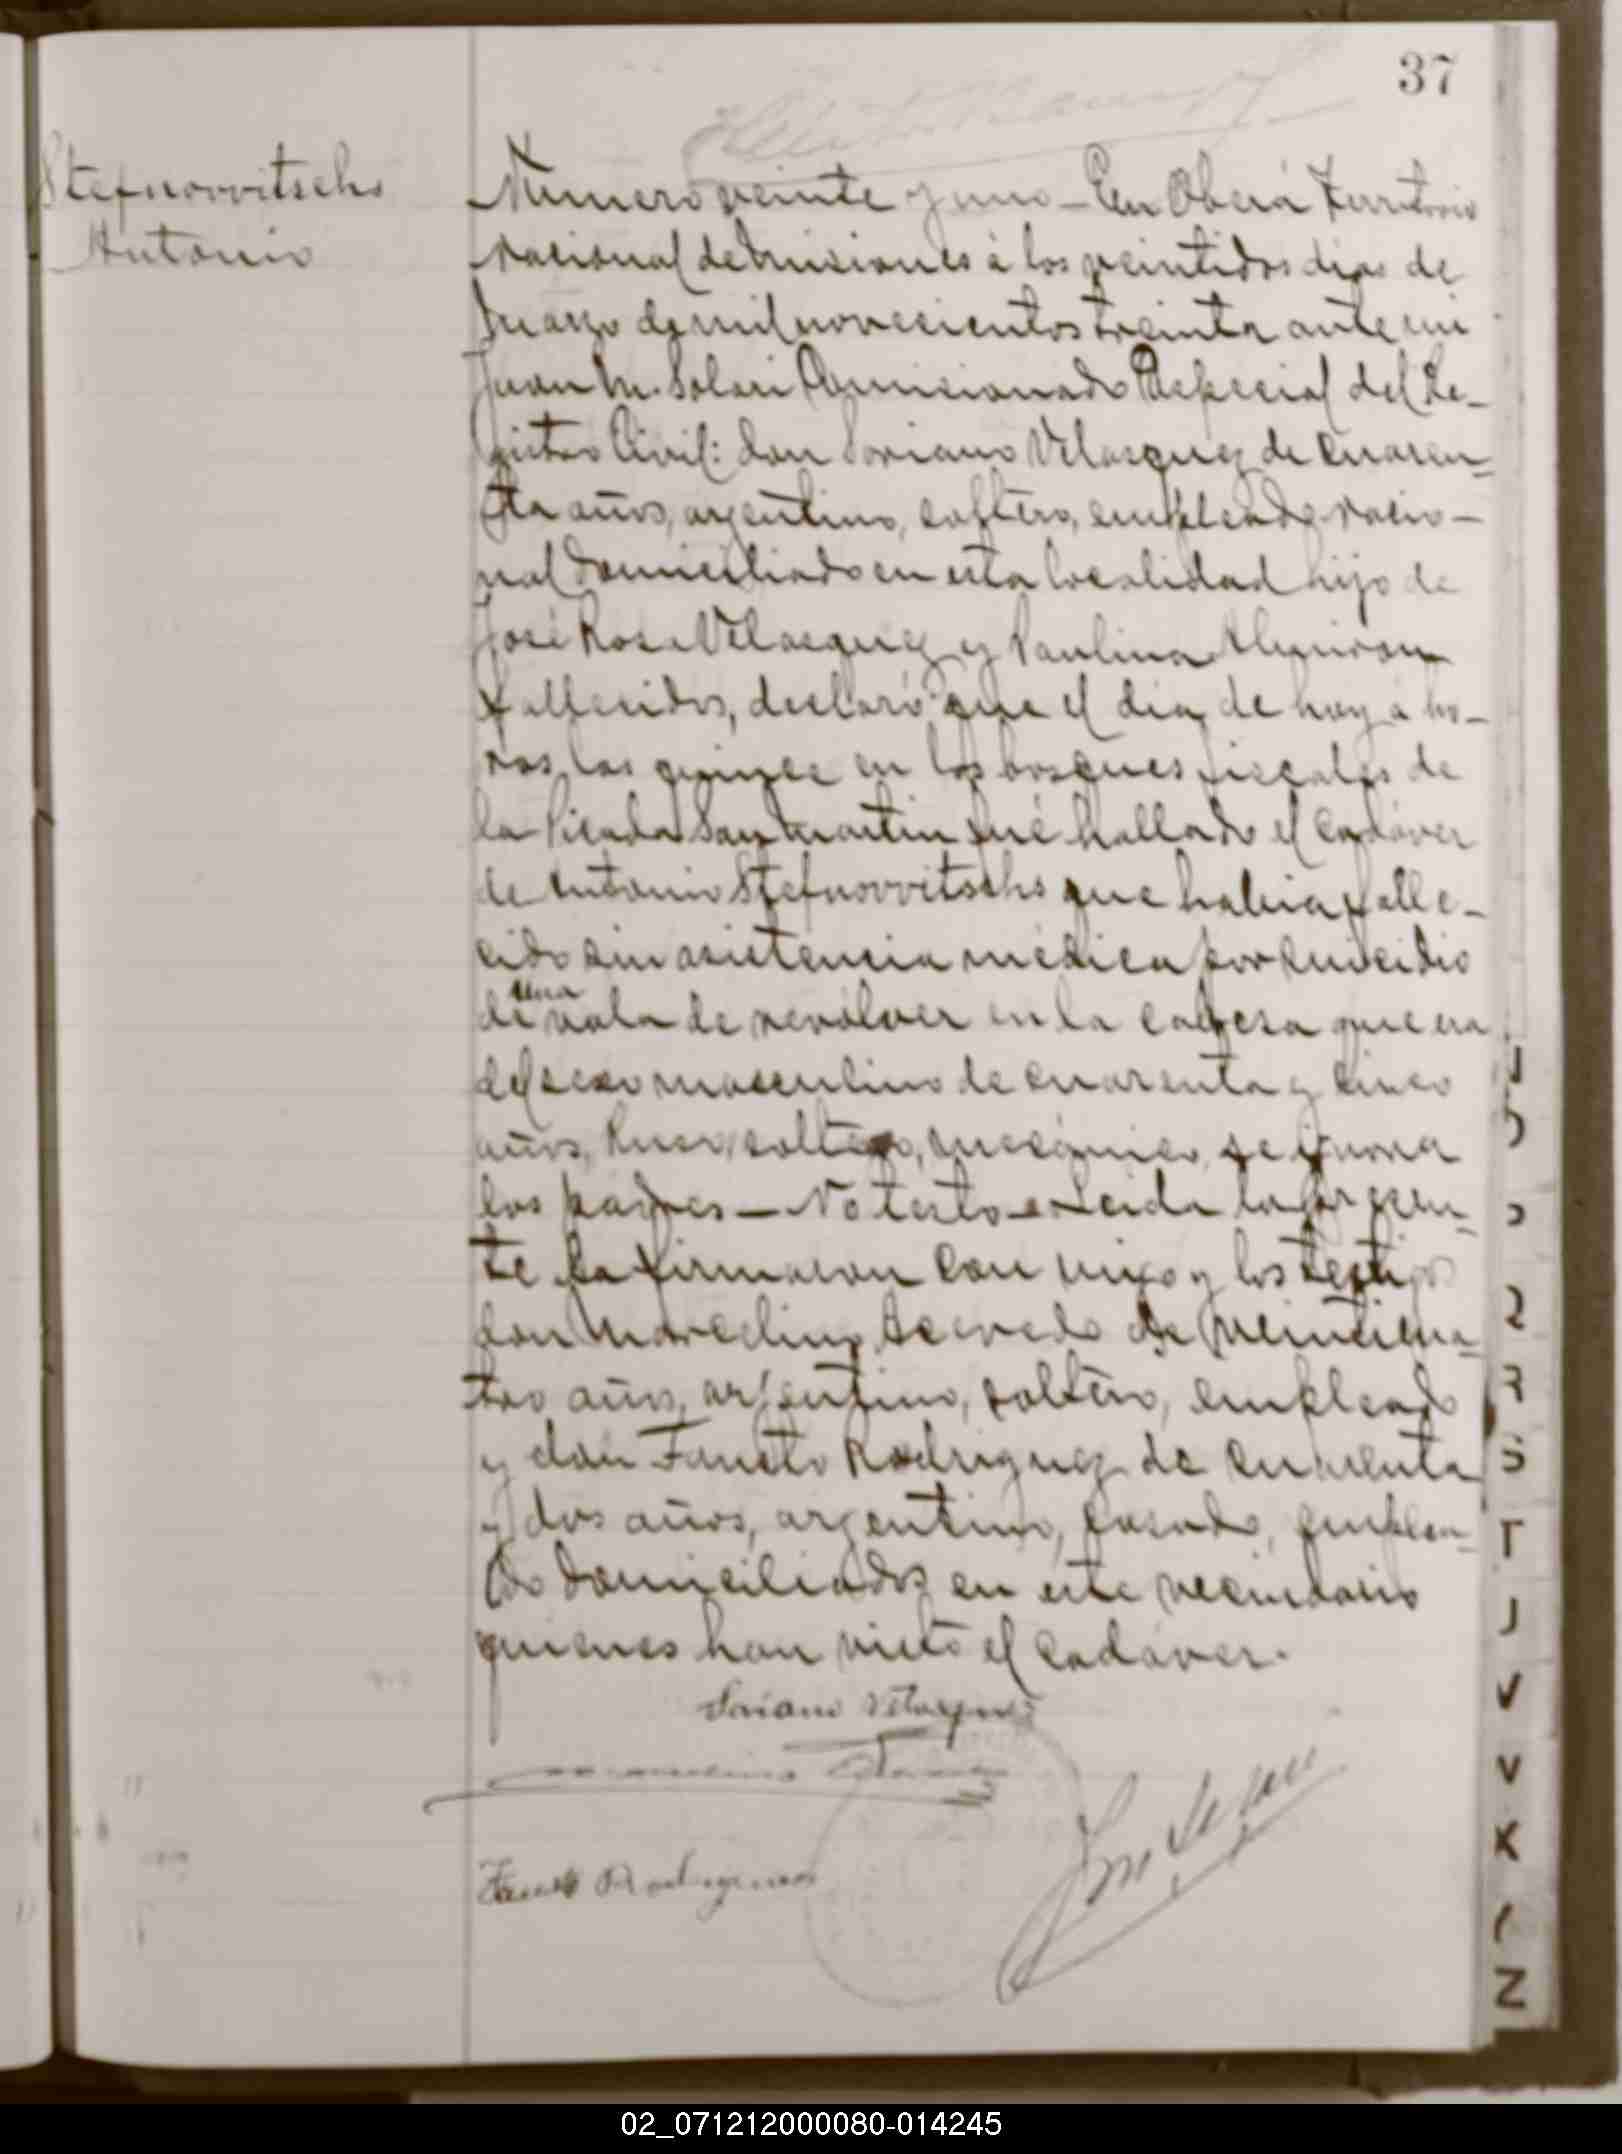 37
Stefnovvitschs
Antonio
Número veinte y uno – En Oberá Territorio
Nacional de Misiones á los veintidos dias de
Marzo de mil novecientos treinta ante mi
Juan M. Solari Comicionado Especial del Re-
gistro Civil: don Soriano Velasquez de cuaren-
ta años, argentino, soltero, empleado nacio-
nal domiciliado en esta localidad hijo de
José Rosa Velasquez y Paulina Almiron
fallecidos, declaró que el dia de hoy á ho-
ras las quince en los bosques fiscales de
la Picada San Martin fué hallado el cadáver
de Antonio Stefnovvitschs que habia falle-
cido sin asistencia médica por suicidio
una
de vala de revólver en la cabesa que era
del sexo masculino de cuarenta y cinco
años, Ruso, soltero, mecánico, se ignora
los padres – No testo – Leida la presen-
te la firmaron con migo y los testigos
don Marcelino Acevedo de veinticua-
tro años, argentino, soltero, empleado
y don Fausto Rodriguez de cuarenta
y dos años, argentino, casado, emplea-
do domiciliados en este vecindario
quienes han visto el cadáver.
Soriano Velasquez
Fausto Rodriguez
R
S
T
J
V
V
X
Z
02_071212000080-014245